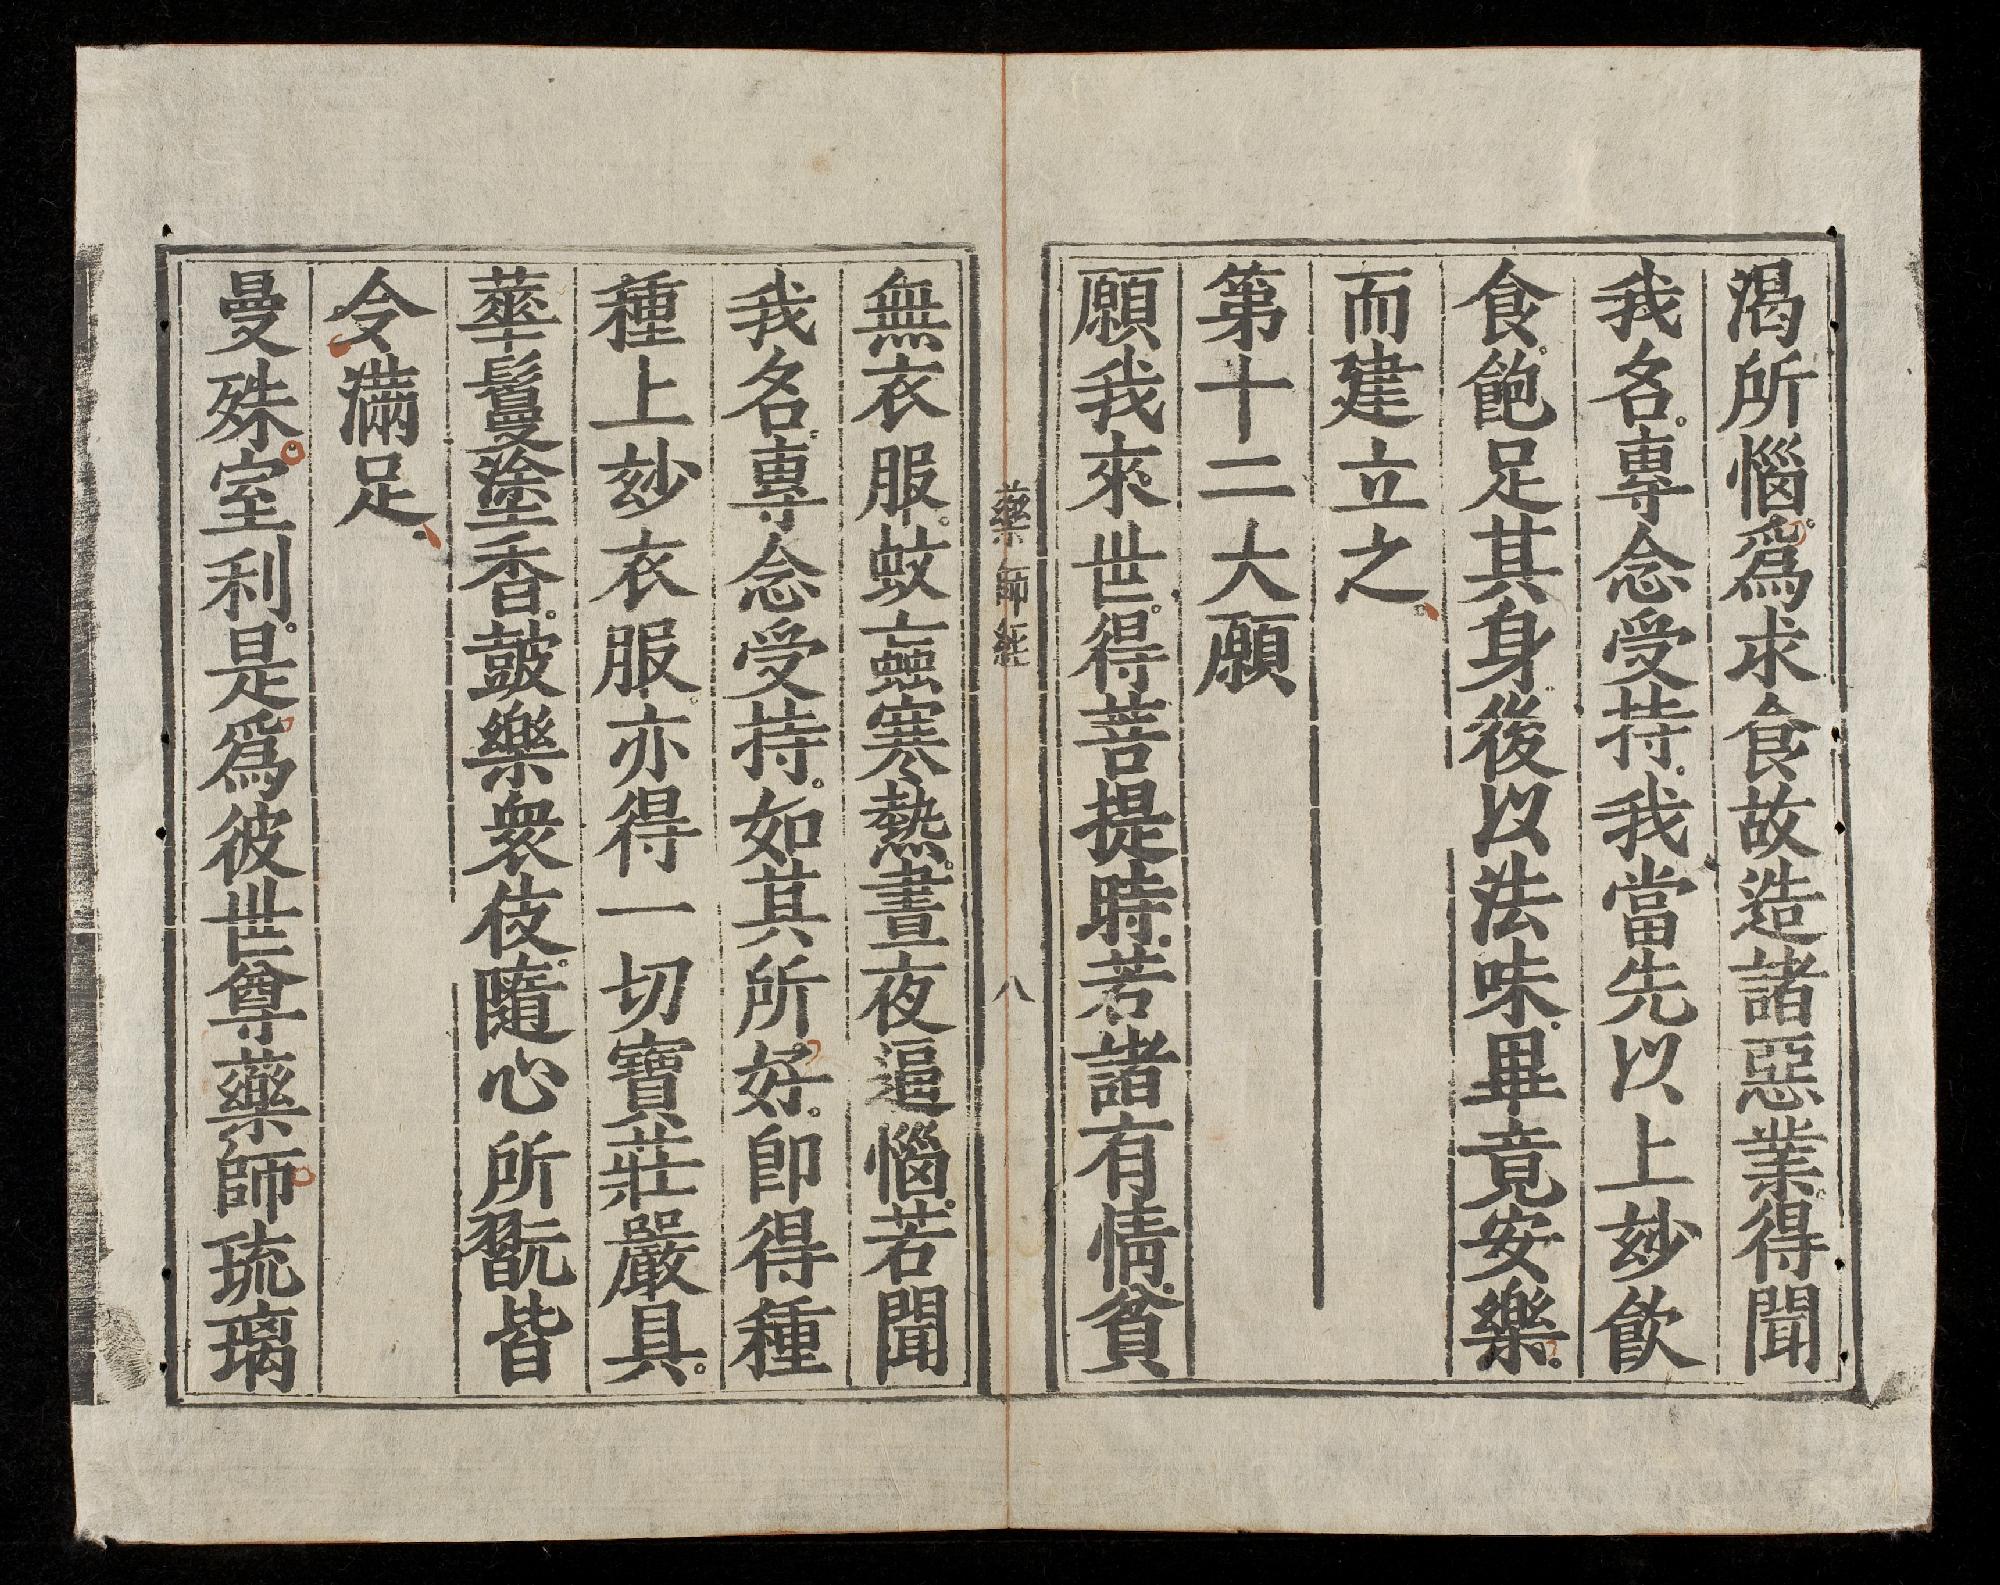 渴所惱。爲求食故造諸惡業。得聞
我名。專念受持。我當先以上玅飲
食。飽足其身。後以法味。畢竟安樂。
而建立之。
第十二大願
願我來世。得菩提時。若諸有情。貧
藥師經
八
無衣服。蚊蝱寒熱。晝夜逼惱。若聞
我名。專念受持。如其所好。即得種
種上玅衣服。亦得一切寶莊嚴具。
華鬘塗香。鼓樂衆伎。隨心所翫。皆
令滿足。
曼殊室利。是爲彼世尊藥師琉璃